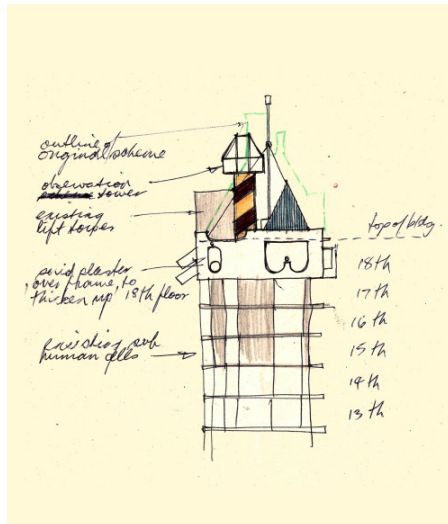 outline of
original scheme
observation
tower
existing
lift towers
plaster
over frame to
thicken up 18th floor
existing sub
human cells
top of bldg.
18th
17th
16th
15th
14th
13th